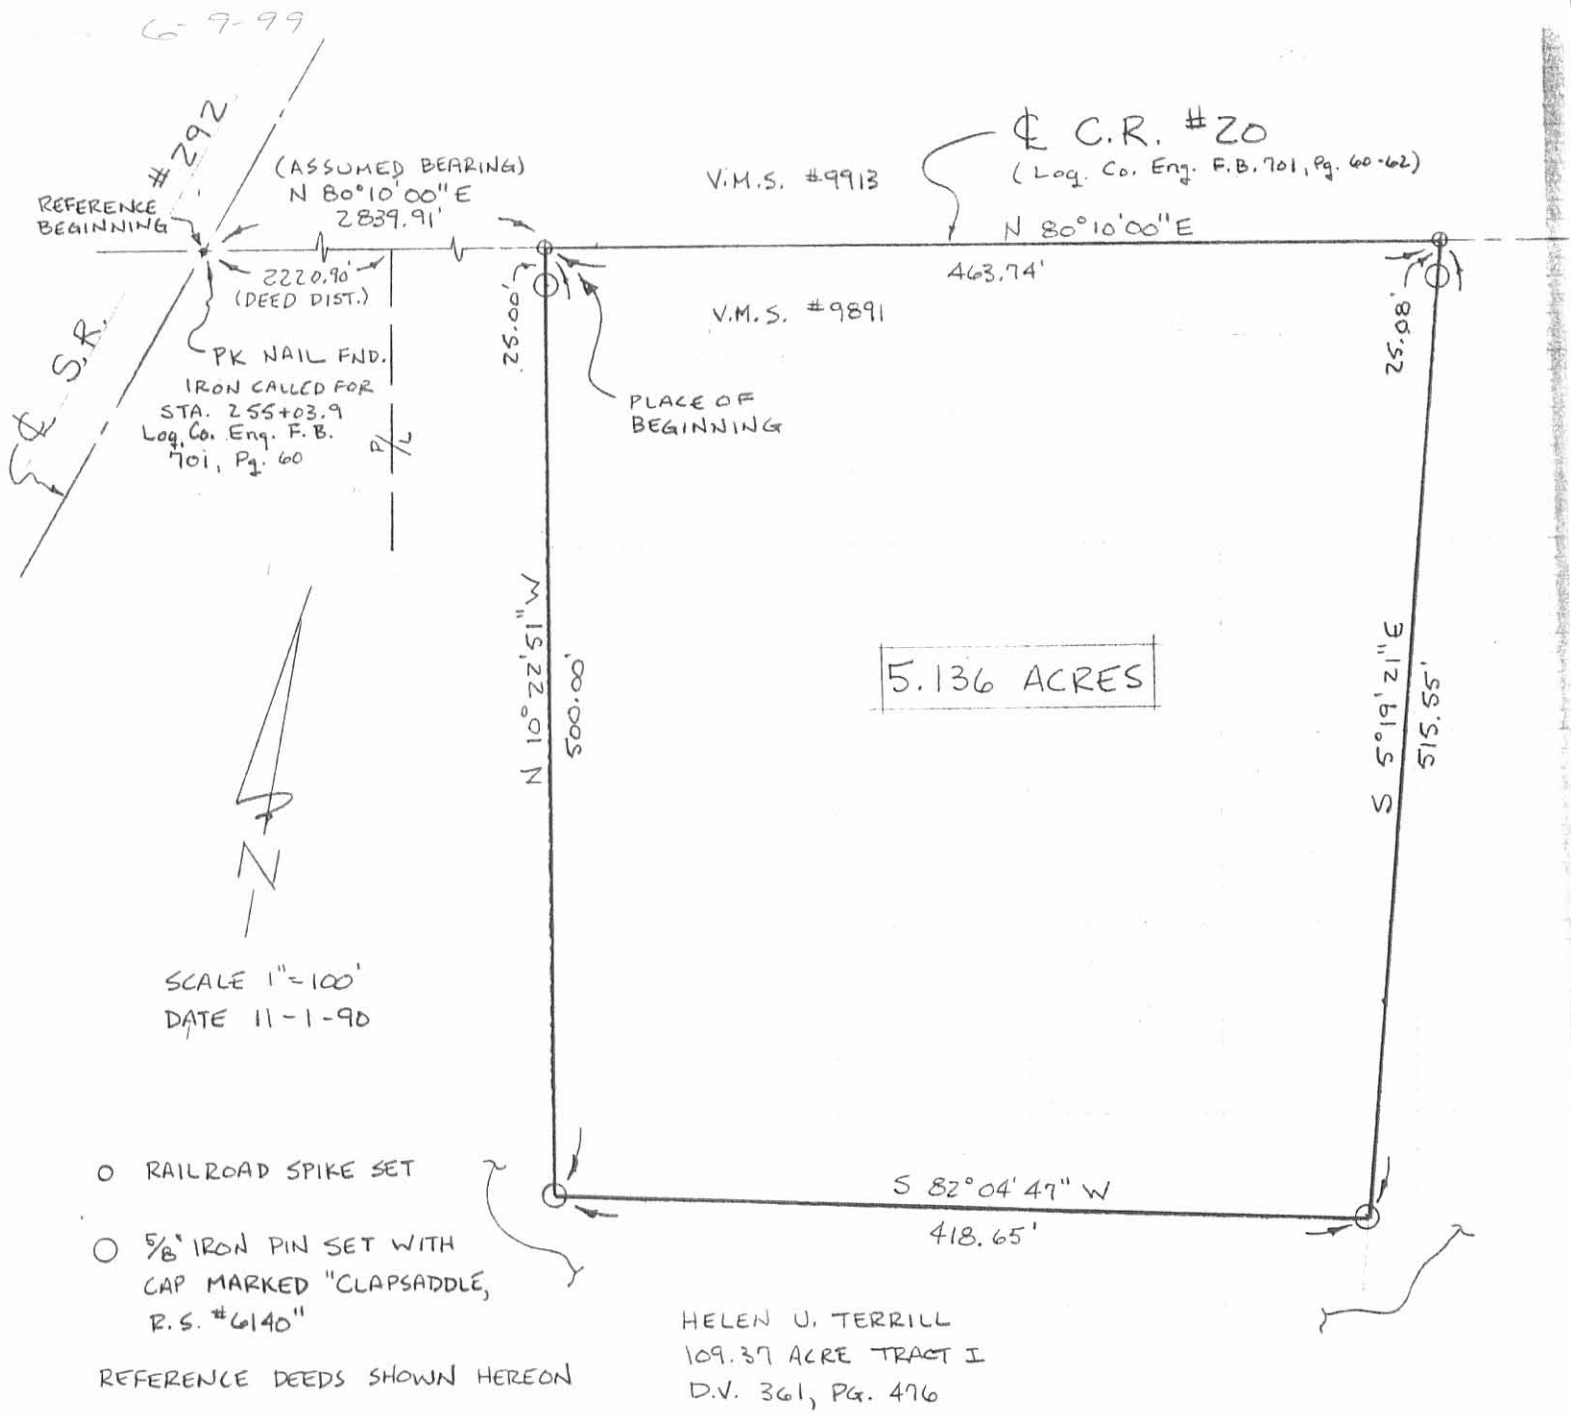 6-9-99
℄ S.R. #292
REFERENCE
BEGINNING
(ASSUMED BEARING)
N 80°10'00"E
2839.91'
2220.90'
(DEED DIST.)
PK NAIL FND.
IRON CALLED FOR
STA. 255+03.9
Log. Co. Eng. F.B.
701, Pg. 60
P/L
V.M.S. #9913
℄ C.R. #20
(Log. Co. Eng. F.B. 701, Pg. 60-62)
N 80°10'00"E
463.74'
V.M.S. #9891
25.00'
25.08'
PLACE OF
BEGINNING
N 10°22'51"W
500.00'
5.136 ACRES
S 5°19'21"E
515.55'
N
SCALE 1"=100'
DATE 11-1-90
S 82°04'47" W
418.65'
RAILROAD SPIKE SET
5/8" IRON PIN SET WITH
CAP MARKED "CLAPSADDLE,
R.S. #6140"
REFERENCE DEEDS SHOWN HEREON
HELEN U. TERRILL
109.37 ACRE TRACT I
D.V. 361, PG. 476